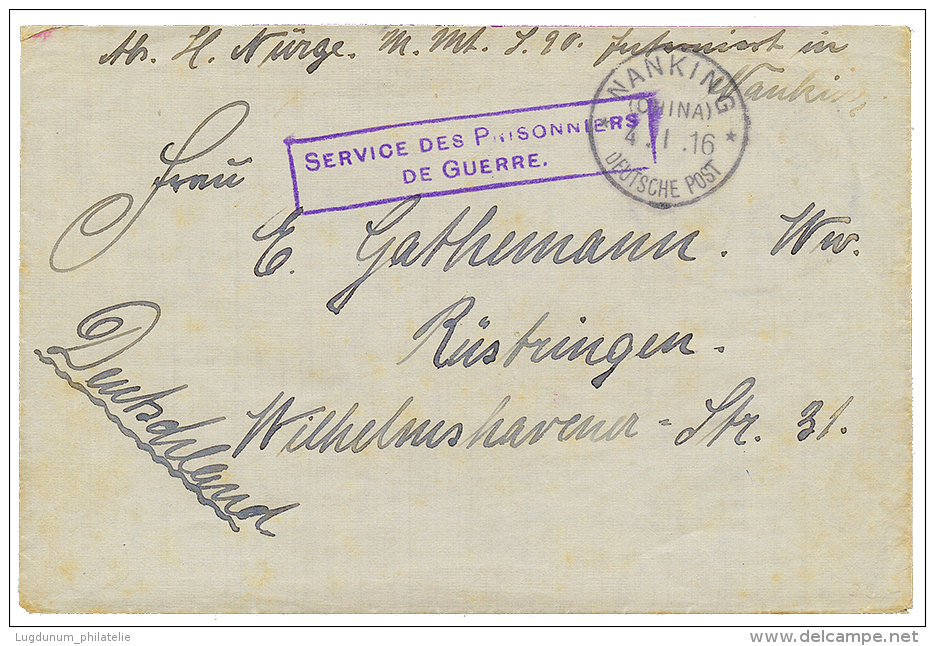 Abs. H. Nürge. M. Mt. S. 90. interniert in
Nanking
SERVICE DES PRISONNIERS
DE GUERRE.
NANKING
(CHINA)
* 4.1.16 *
DEUTSCHE POST
Frau
E. Gathemann. Ww.
Rüstringen.
Wilhelmshavener-Str. 31.
Deutschland
Lugdunum_philatelie
www.delcampe.net